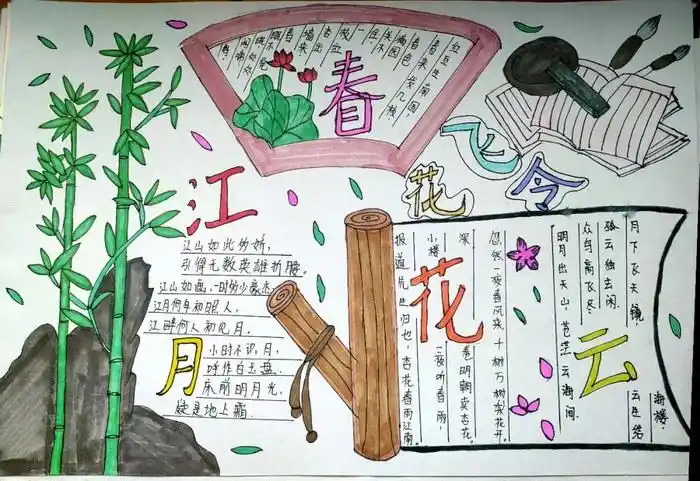 春
红豆生南国，
春来发几枝
满园春色
关不住，
一枝红
杏出
墙来
春
眠不
觉
晓，处处
闻啼
鸟！
飞
花
令
江
江山如此多娇，
引得无数英雄折腰。
江山如画，一时多少豪杰
江月何年初照人，
江畔何人初见月．
月
小时不识月，
呼作白玉盘．
床前明月光，
疑是地上霜．
花
云
月下飞天镜
云生结
海楼．
众鸟高飞尽
孤云独去闲．
明月出天山，苍茫云海间．
忽然一夜春风来，千树万树梨花开，
深巷明朝卖杏花，
小楼一夜听春雨，
报道先生归也，杏花春雨江南．